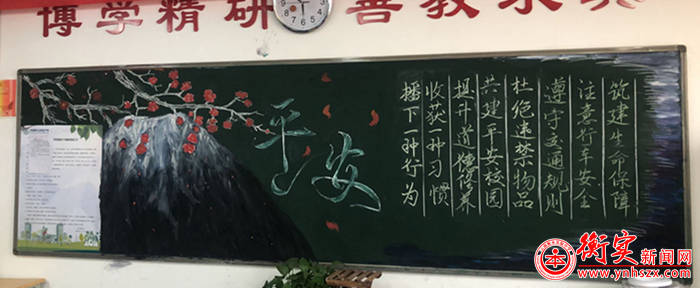 博学精研
善教
平安
筑建生命保障
注意行车安全
遵守交通规则
杜绝违禁物品
共建平安校园
提升道德修养
收获一种习惯
播下一种行为
衡实新闻网
www.ynhszx.com